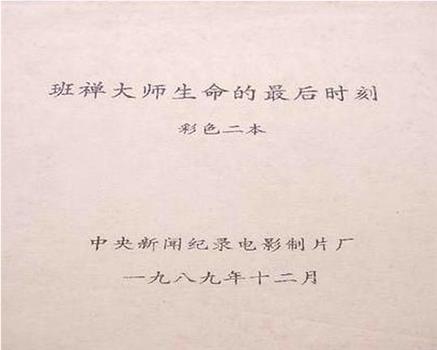 班禅大师生命的最后时刻
彩色二本
中央新闻纪录电影制片厂
一九八九年十二月